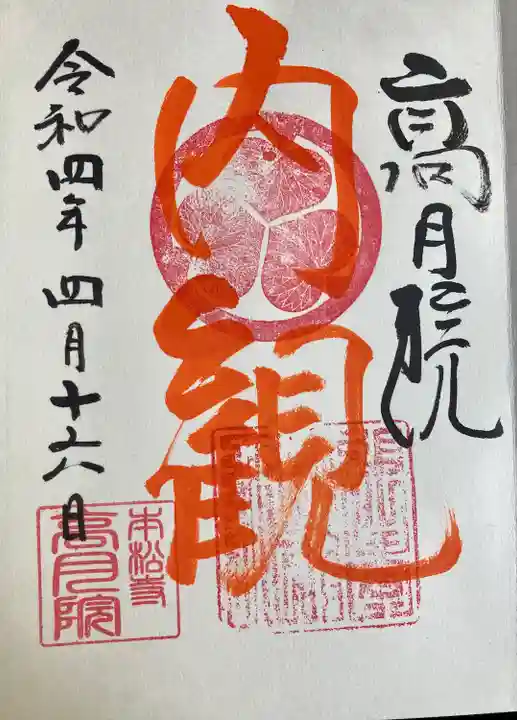 高月院
内観
令和四年 四月十六日
本松寺
高月院